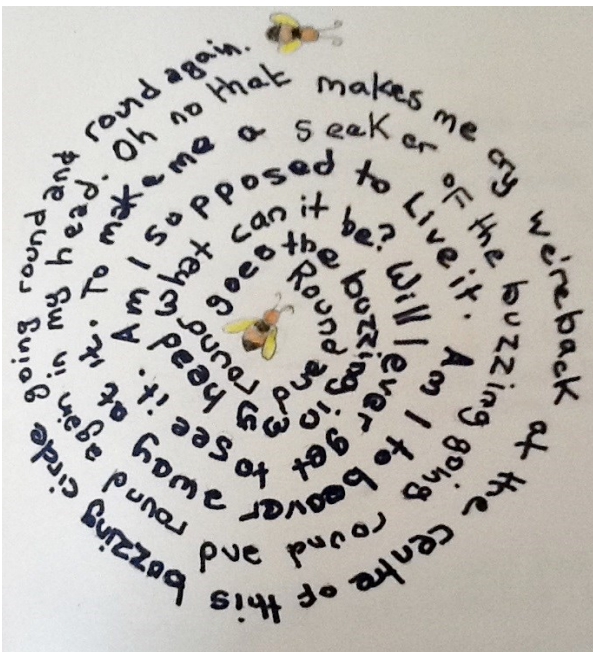 Round and round goes the buzzing in my head what can it be? Will I ever get to see it. Am I sopposed to Live it. Am I to beaver away at it. To make me a seeker of the buzzing going round and round again in my head. Oh no that makes me cry we're back at the centre of this buzzing circle going round and round again.